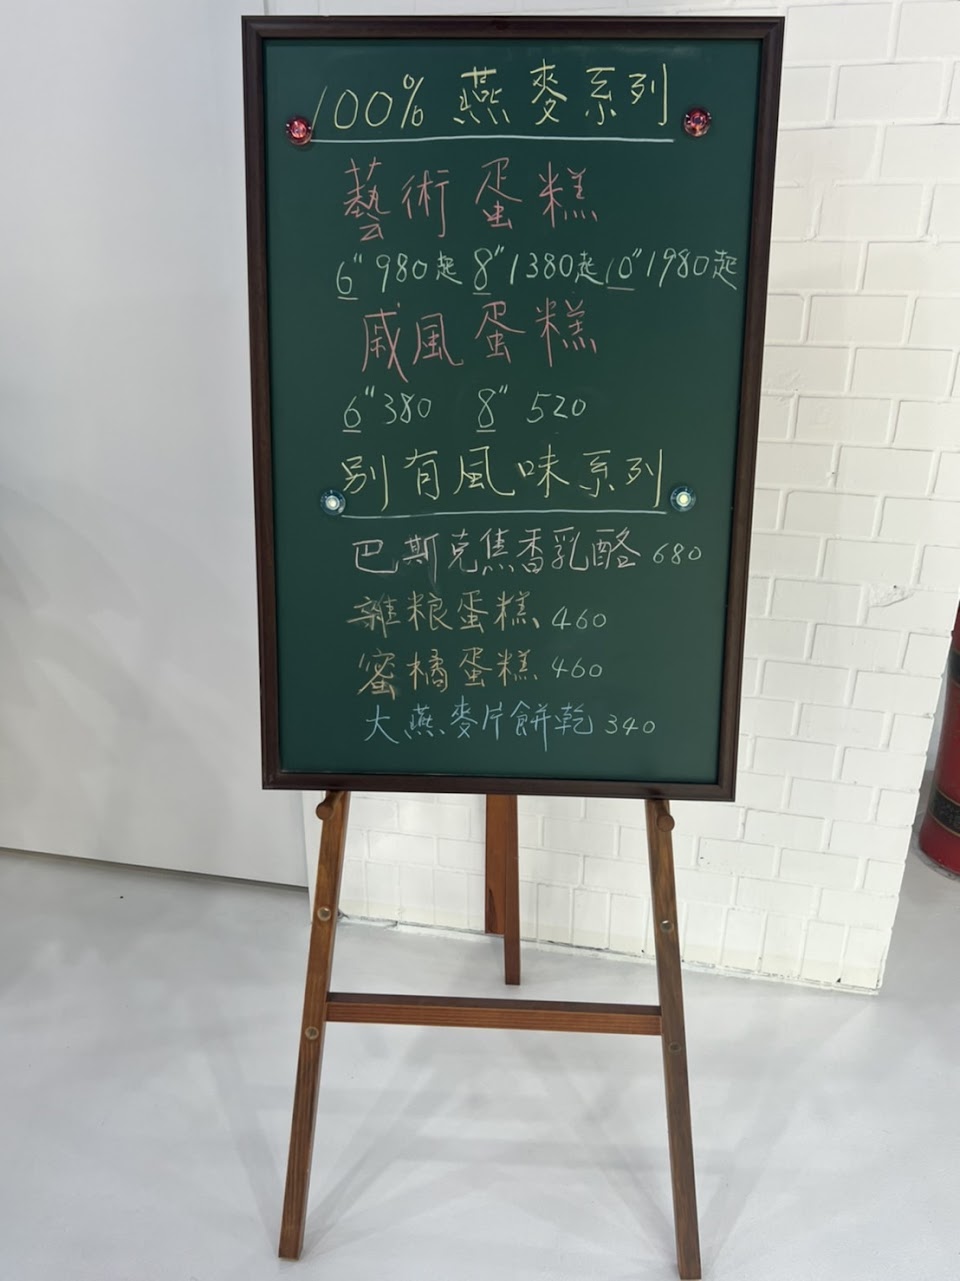 100% 燕麥系列
藝術蛋糕
6" 980起 8" 1380起 10" 1980起
戚風蛋糕
6" 380 8" 520
別有風味系列
巴斯克焦香乳酪 680
雜粮蛋糕 460
蜜橘蛋糕 460
大燕麥片餅乾 340